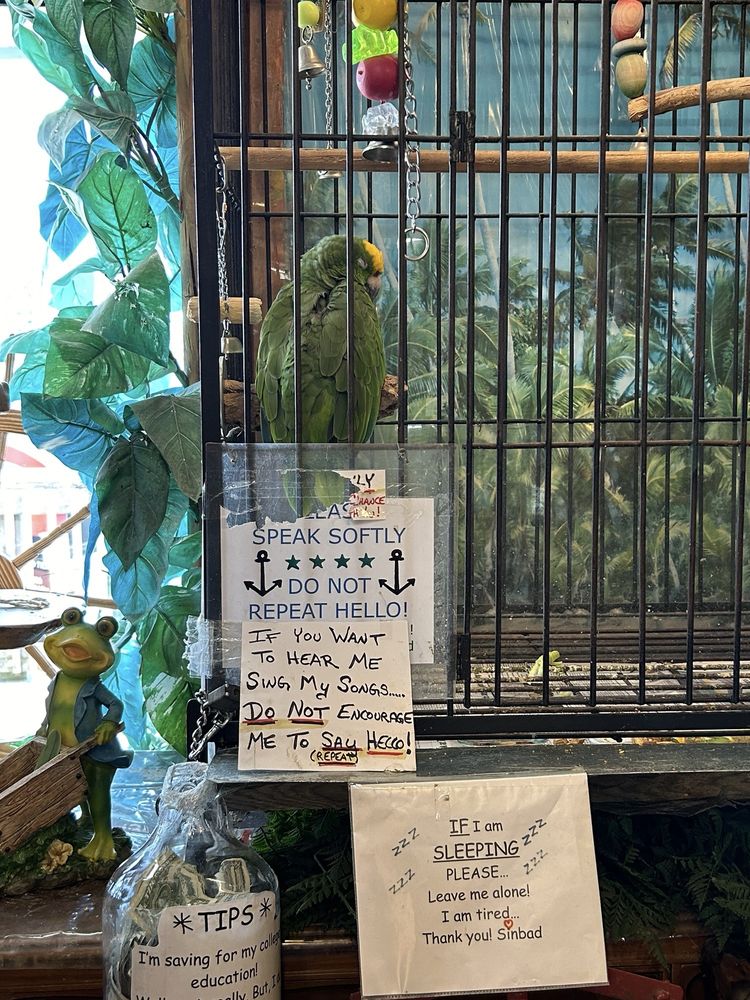 SPEAK SOFTLY
★ ★ ★ ★
DO NOT
REPEAT HELLO!
IF YOU WANT
TO HEAR ME
SING MY SONGS.....
DO NOT ENCOURAGE
ME TO SAY HELLO!
(REPEAT)
zzz zzz
zzz zzz
IF I am
SLEEPING
PLEASE...
Leave me alone!
I am tired...
Thank you! Sinbad
* TIPS *
I'm saving for my
education!
But, I